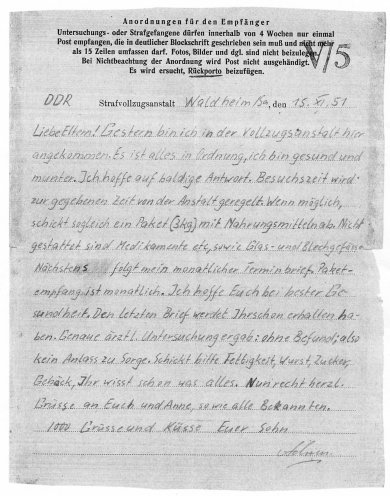 Anordnungen für den Empfänger
Untersuchungs- oder Strafgefangene dürfen innerhalb von 4 Wochen nur einmal
Post empfangen, die in deutlicher Blockschrift geschrieben sein muß und nicht mehr
als 15 Zeilen umfassen darf. Fotos, Bilder und dgl. sind nicht beizulegen.
Bei Nichtbeachtung der Anordnung wird Post nicht ausgehändigt.
Es wird ersucht, Rückporto beizufügen.
V/5
DDR Strafvollzugsanstalt Waldheim Sa, den 15. XI. 51
Liebe Eltern! Gestern bin ich in der Vollzugsanstalt hier
angekommen. Es ist alles in Ordnung, ich bin gesund und
munter. Ich hoffe auf baldige Antwort. Besuchszeit wird
zur gegebenen Zeit von der Anstalt geregelt. Wenn möglich,
schickt sogleich ein Paket (3kg) mit Nahrungsmitteln ab. Nicht
gestattet sind Medikamente etc, sowie Glas- und Blechgefäße
Nächstens folgt mein monatlicher Terminbrief. Paket-
empfang ist monatlich. Ich hoffe Euch bei bester Ge-
sundheit. Den letzten Brief werdet Ihr schon erhalten ha-
ben. Genaue ärztl. Untersuchung ergab: ohne Befund; also
kein Anlass zu Sorge. Schickt bitte Fettigkeit, Wurst, Zucker,
Gebäck, Ihr wisst schon was alles. Nun recht herzl.
Grüsse an Euch und Anne, sowie alle Bekannten.
1000 Grüsse und Küsse Euer Sohn